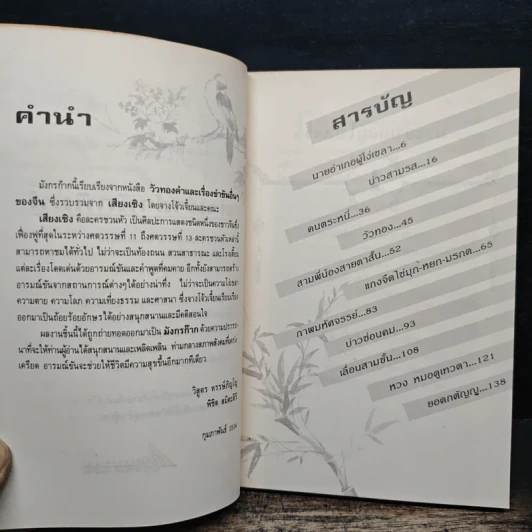 คำนำ
มังกรก๊ากนี้เรียบเรียงจากหนังสือ วัวทองคำและเรื่องขำขันอื่นๆ
ของจีน ซึ่งรวบรวมจาก เสียงเชิง โดยจางโจ้วเจี้ยนและคณะ
เสียงเชิง คือละครชวนหัว เป็นศิลปะการแสดงชนิดหนึ่งของชาวจีนซึ่ง
เฟื่องฟูที่สุดในระหว่างศตวรรษที่ 11 ถึงศตวรรษที่ 13 ละครชวนหัวเหล่านี้
สามารถหาชมได้ทั่วไป ไม่ว่าจะเป็นท้องถนน สวนสาธารณะ และโรงเตี๊ยม
แต่ละเรื่องโดดเด่นด้วยอารมณ์ขันและคำพูดที่คมคาย อีกทั้งยังสามารถสร้าง
อารมณ์ขันจากสถานการณ์ต่างๆได้อย่างน่าทึ่ง ไม่ว่าจะเป็นความโง่เขลา
ความตาย ความโลภ ความเที่ยงธรรม และศาสนา ซึ่งจางโจ้วเจี้ยนเรียบเรียง
ออกมาเป็นถ้อยร้อยอักษรได้อย่างสนุกสนานและมีคติสอนใจ
ผลงานชิ้นนี้ได้ถูกถ่ายทอดออกมาเป็น มังกรก๊าก ด้วยความปรารถ-
นาที่จะให้ท่านผู้อ่านได้สนุกสนานและเพลิดเพลิน ท่ามกลางสภาพสังคมที่เคร่ง
เครียด อารมณ์ขันจะช่วยให้ชีวิตมีความสุขขึ้นอีกมากทีเดียว
วิสูตร
พิชิต
กุมภาพันธ์
สารบัญ
นายอำเภอผู้โง่เขลา...6
บ่าวสามรส...16
คนตระหนี่...36
วัวทอง...45
สามพี่น้องสายตาสั้น...52
แกงจืดไข่มุก-หยก-มรกต...65
ภาพมหัศจรรย์...83
บ่าวซ่อนคม...93
เลื่อนสามขั้น...108
หวง หมอดูเทวดา...121
ยอดกตัญญู...138